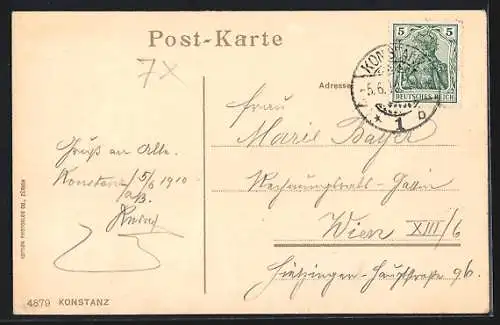 Post-Karte
7X
5 5
DEUTSCHES REICH
KONSTANZ
5.6.
* 1 b
Adresse
Frau
Marie Bayer
Rechnungsrats-Gattin
Wien XIII/6
Hietzinger-Hauptstrasse 96.
Gruß an Alle.
Konstanz 5/6 1910
a/B.
EDITION PHOTOGLOB CO., ZÜRICH
4879 KONSTANZ